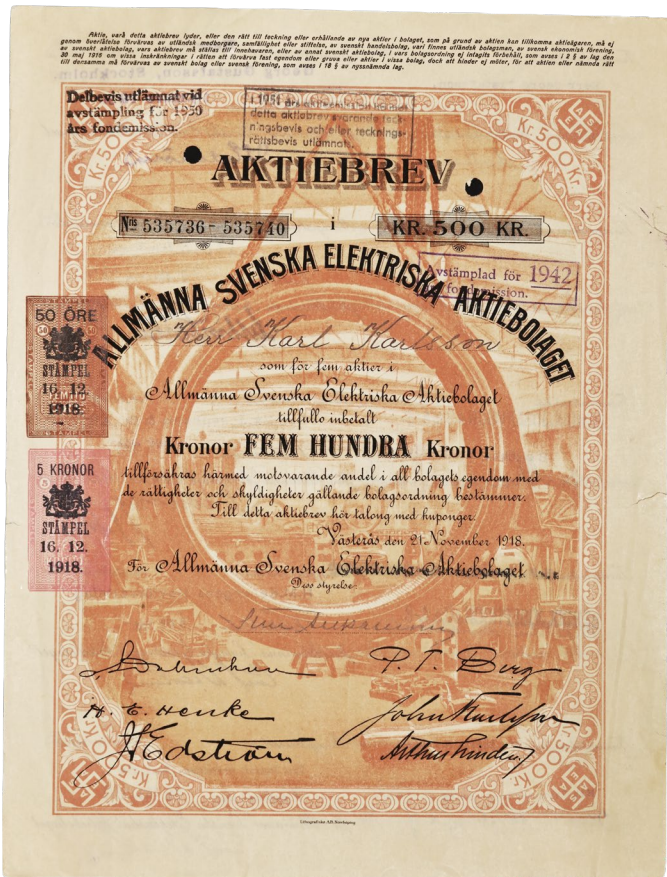 Aktie, varå detta aktiebrev lyder, eller den rätt till teckning eller erhållande av nya aktier i bolaget, som på grund av aktien kan tillkomma aktieägaren, må ej
genom överlåtelse förvärvas av utländsk medborgare, samfällighet eller stiftelse, av svenskt handelsbolag, vari finnes utländsk bolagsman, av svensk ekonomisk förening,
av svenskt aktiebolag, vars aktiebrev må ställas till innehavaren, eller av annat svenskt aktiebolag, i vars bolagsordning ej intagits förbehåll, som avses i 2 § av lag den
30 maj 1916 om vissa inskränkningar i rätten att förvärva fast egendom eller gruva eller aktier i vissa bolag, dock att hinder ej möter, för att aktien eller nämnda rätt
till densamma må förvärvas av svenskt bolag eller svensk förening, som avses i 18 § av nyssnämnda lag.
Delbevis utlämnat vid
avstämpling för 1950
års fondemission.
i 1951 års
detta aktiebrev svarande teck-
ningsbevis och/eller tecknings-
rättsbevis utlämnat.
Kr. 500 Kr.
Kr. 500 Kr.
AKTIEBREV
Nris 535736 - 535740 i KR. 500 KR.
Avstämplad för 1942
fondemission.
ALLMÄNNA SVENSKA ELEKTRISKA AKTIEBOLAGET
Herr Karl Karlsson
50 ÖRE
STÄMPEL
16. 12.
1918.
som för fem aktier i
Allmänna Svenska Elektriska Aktiebolaget
tillfullo inbetalt
Kronor FEM HUNDRA Kronor
tillförsäkras härmed motsvarande andel i all bolagets egendom med
de rättigheter och skyldigheter gällande bolagsordning bestämmer.
Till detta aktiebrev hör talong med kuponger.
5 KRONOR
STÄMPEL
16. 12.
1918.
Västerås den 21 November 1918.
För Allmänna Svenska Elektriska Aktiebolaget
Dess styrelse:
P. T. Berg
H. E. Henke
J Edström
Arthur Linden
Kr. 500 Kr.
Kr. 500 Kr.